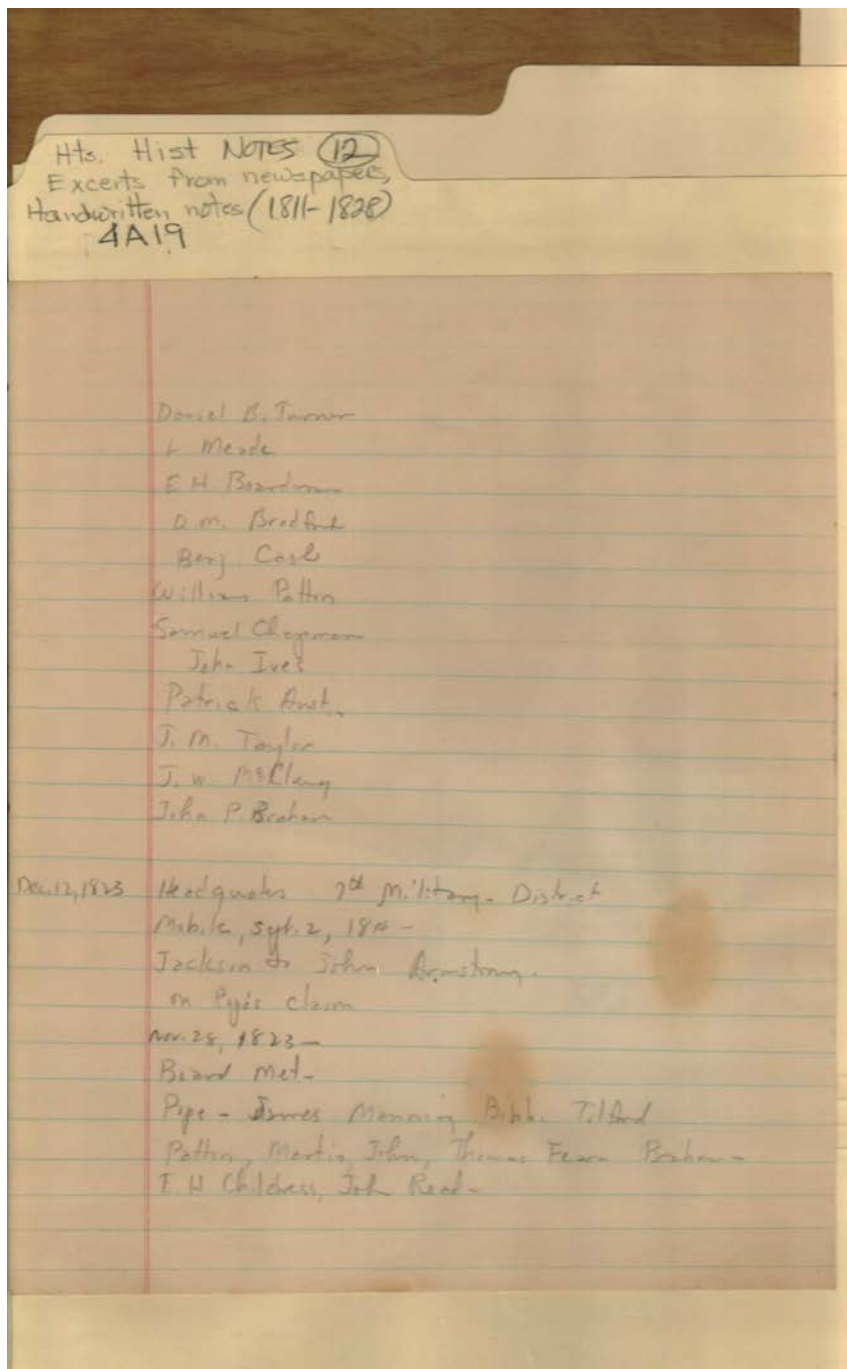 Hts. Hist NOTES (12)
Excerts from newspapers,
Handwritten notes (1811-1828)
4A19
Daniel B. Turner
L Meade
E H Boardman
D. M. Bradford
Benj Cash
William Patton
Samuel Chapman
John Ives
Patrick
J. M. Taylor
J. W. McClung
John P. Braham
Dec. 12, 1823 Headquates 7th Military District
Mobile, Sept. 2, 18
Jackson to John Armstrong.
on claim
Nov. 28, 1823-
Board Met-
Pope - James Manning Bibb. Tilford
Patton, Martin, John, Thomas Fearn Braham-
E. H Childress, John Read-